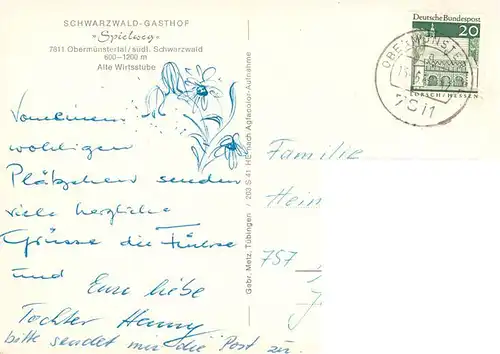 SCHWARZWALD-GASTHOF
»Spielweg«
7811 Obermünstertal/südl. Schwarzwald
600-1200 m
Alte Wirtsstube
Deutsche Bundespost
20
LORSCH/HESSEN
OBERMÜNSTER
7811
Vom einem
wohligen
Plätzchen senden
viele herzliche
Grüsse die
und Eure liebe
Tochter Hanny
bitte sendet mir die Post zu.
Gebr. Metz, Tübingen / 203 S 41 HE nach Agfacolor-Aufnahme
Familie
Hein
757